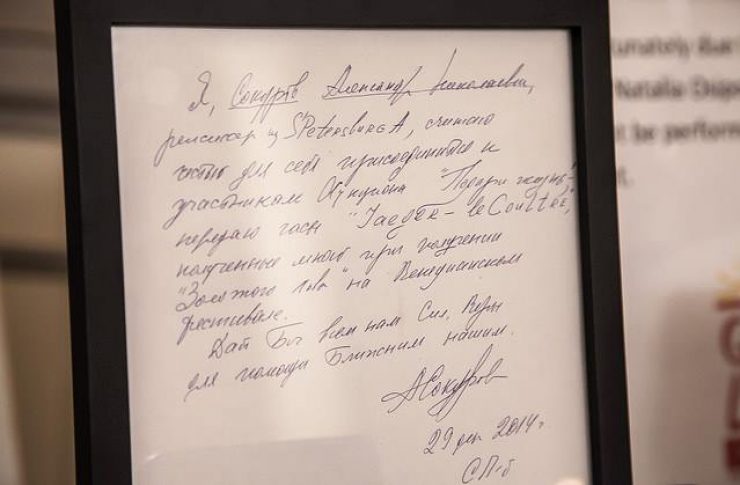 Я, Сокуров Александр Николаевич,
режиссер из S'PetersburgA, считаю
честью для себя присоединиться к
участникам Аукциона "Подари жизнь"
передаю часы "Jaeger-leCoultre",
полученные мной при получении
"Золотого Льва" на Венецианском
фестивале.
Дай Бог всем нам Сил, Веры
для помощи Ближним нашим.
АСокуров
29 2014 г
СП-б
unately due
Natalia Disp
t be perform